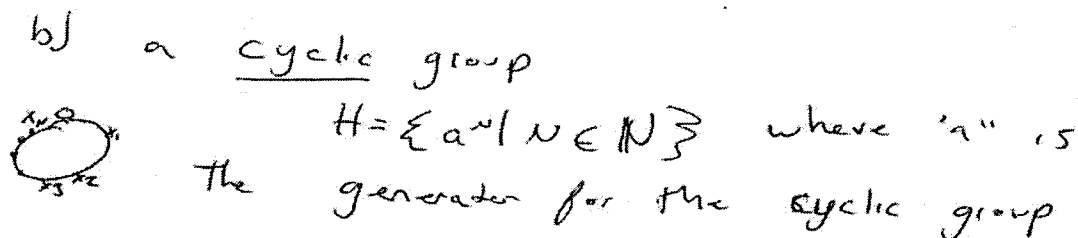 b) a cyclic group
H = {a^n | n ∈ ℕ} where "a" is
the generator for the cyclic group